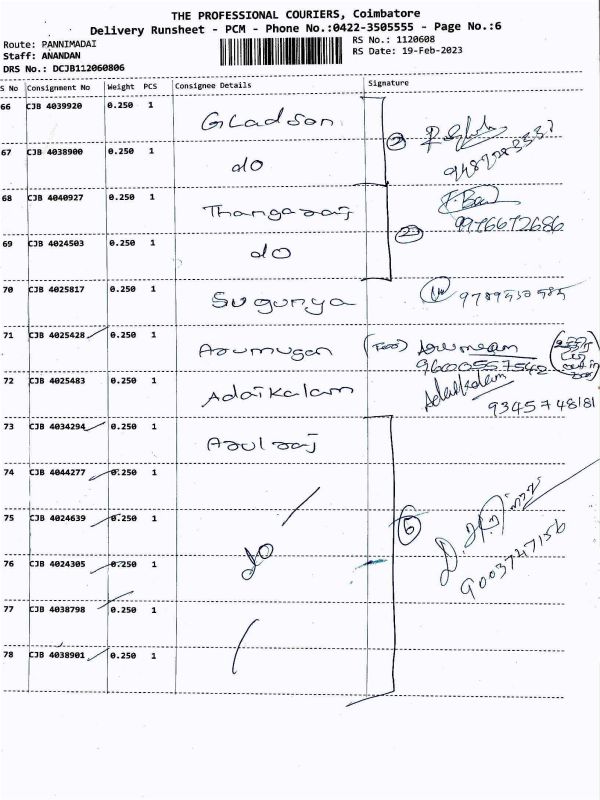 THE PROFESSIONAL COURIERS, Coimbatore
Delivery Runsheet - PCM - Phone No.:0422-3505555 - Page No.:6
Route: PANNIMADAI
RS No.: 1120608
Staff: ANANDAN
RS Date: 19-Feb-2023
DRS No.: DCJB112060806
S No Consignment No Weight PCS Consignee Details Signature
66 CJB 4039920 0.250 1 Gladson
67 CJB 38900 0.250 1 do
68 CJB 4040927 0.250 1 Thangaraj 9976672686
69 CJB 4024503 0.250 1 do
70 CJB 4025817 0.250 1 Sugunya
71 CJB 4025428 0.250 1 Arumugan 9600557542
72 CJB 4025483 0.250 1 Adaikalam Adaikalam
9345748181
73 CJB 4034294 0.250 1 Arulraj
74 CJB 4044277 0.250 1
75 CJB 4024639 0.250 1
76 CJB 4024305 0.250 1 do 9003747156
77 CJB 4038798 0.250 1
78 CJB 4038901 0.250 1